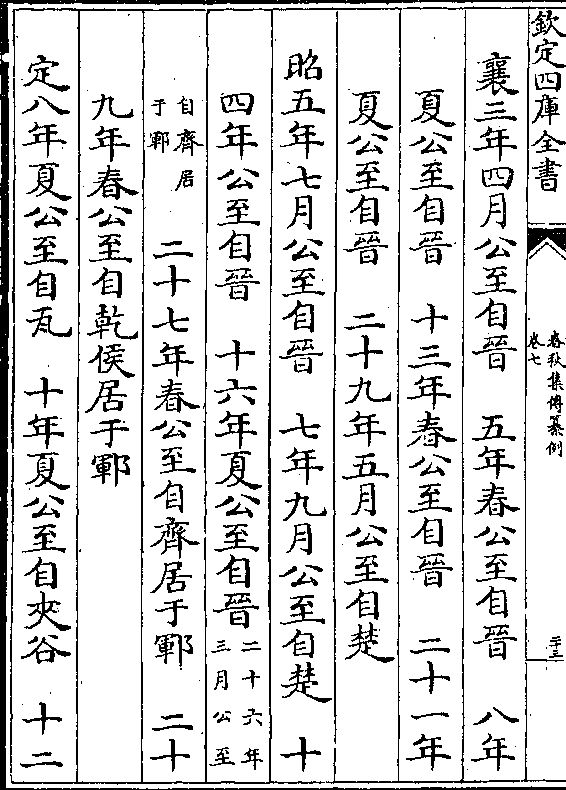 欽定四庫全書
春秋集傳纂例
卷七
二十三
襄三年四月公至自晉 五年春公至自晉 八年
夏公至自晉 十三年春公至自晉 二十一年
夏公至自晉 二十九年五月公至自楚
昭五年七月公至自晉 七年九月公至自楚 十
四年公至自晉 十六年夏公至自晉 二十六年三月公至
自齊居于鄆 二十七年春公至自齊居于鄆 二十
九年春公至自乾侯居于鄆
定八年夏公至自瓦 十年夏公至自夾谷 十二